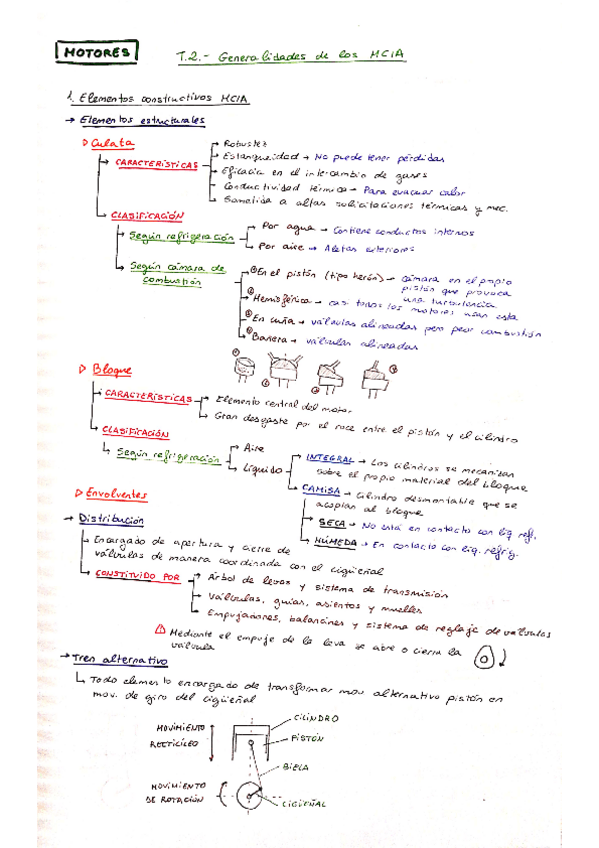 MOTORES
T.2.- Generalidades de los MCIA
1. Elementos constructivos MCIA
→ Elementos estructurales
Culata
CARACTERÍSTICAS
Robustez
Estanqueidad → No puede tener pérdidas
Eficacia en el intercambio de gases
Conductividad térmica → Para evacuar calor
Sometida a altas solicitaciones térmicas y mec.
CLASIFICACIÓN
Según refrigeración
Por agua → Contiene conductos internos
Por aire → Aletas exteriores
Según cámara de
combustión
① En el pistón (tipo herón) → cámara en el propio
pistón que provoca
una turbulencia
② Hemisférica → casi todos los motores usan esta
③ En cuña → válvulas alineadas pero peor combustión
④ Bañera → válvulas alineadas
① ② ③ ④
Bloque
CARACTERÍSTICAS
Elemento central del motor
Gran desgaste por el roce entre el pistón y el cilindro
CLASIFICACIÓN
Según refrigeración
Aire
Líquido
INTEGRAL → Los cilindros se mecanizan
sobre el propio material del bloque
CAMISA → Cilindro desmontable que se
acoplan al bloque
SECA → No está en contacto con liq. refr.
HÚMEDA → En contacto con liq. refrig.
Envolventes
→ Distribución
Encargado de apertura y cierre de
válvulas de manera coordinada con el cigüeñal
CONSTITUIDO POR
Árbol de levas y sistema de transmisión
Válvulas, guías, asientos y muelles
Empujadores, balancines y sistema de reglaje de válvulas
Mediante el empuje de la leva se abre o cierra la
válvula
→ Tren alternativo
Todo elemento encargado de transformar mov. alternativo pistón en
mov. de giro del cigüeñal
MOVIMIENTO
RECTICÍLEO
CILINDRO
PISTÓN
BIELA
MOVIMIENTO
DE ROTACIÓN
CIGÜEÑAL